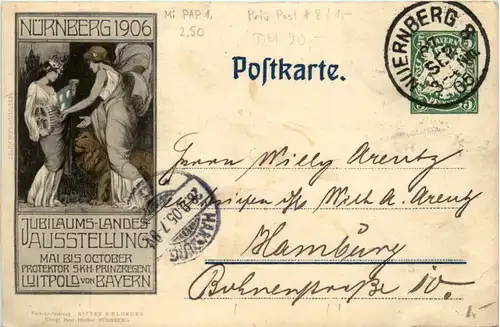 Mi PAP 1,
2,50
Priv Post # 8/1,-
DM 20-
NÜRNBERG 1906
JUBILÄUMS-LANDES
AUSSTELLUNG
MAI BIS OCTOBER
PROTEKTOR S.K.H. PRINZREGENT
LUITPOLD VON BAYERN
RITTER & KLOEDEN
NÜRNBERG
Postkarte.
NUERNBERG
BAYERN
5
Herrn Willy Arentz
Wilh. A. Arentz
HAMBURG
Hamburg
Bohnenstraße 10.